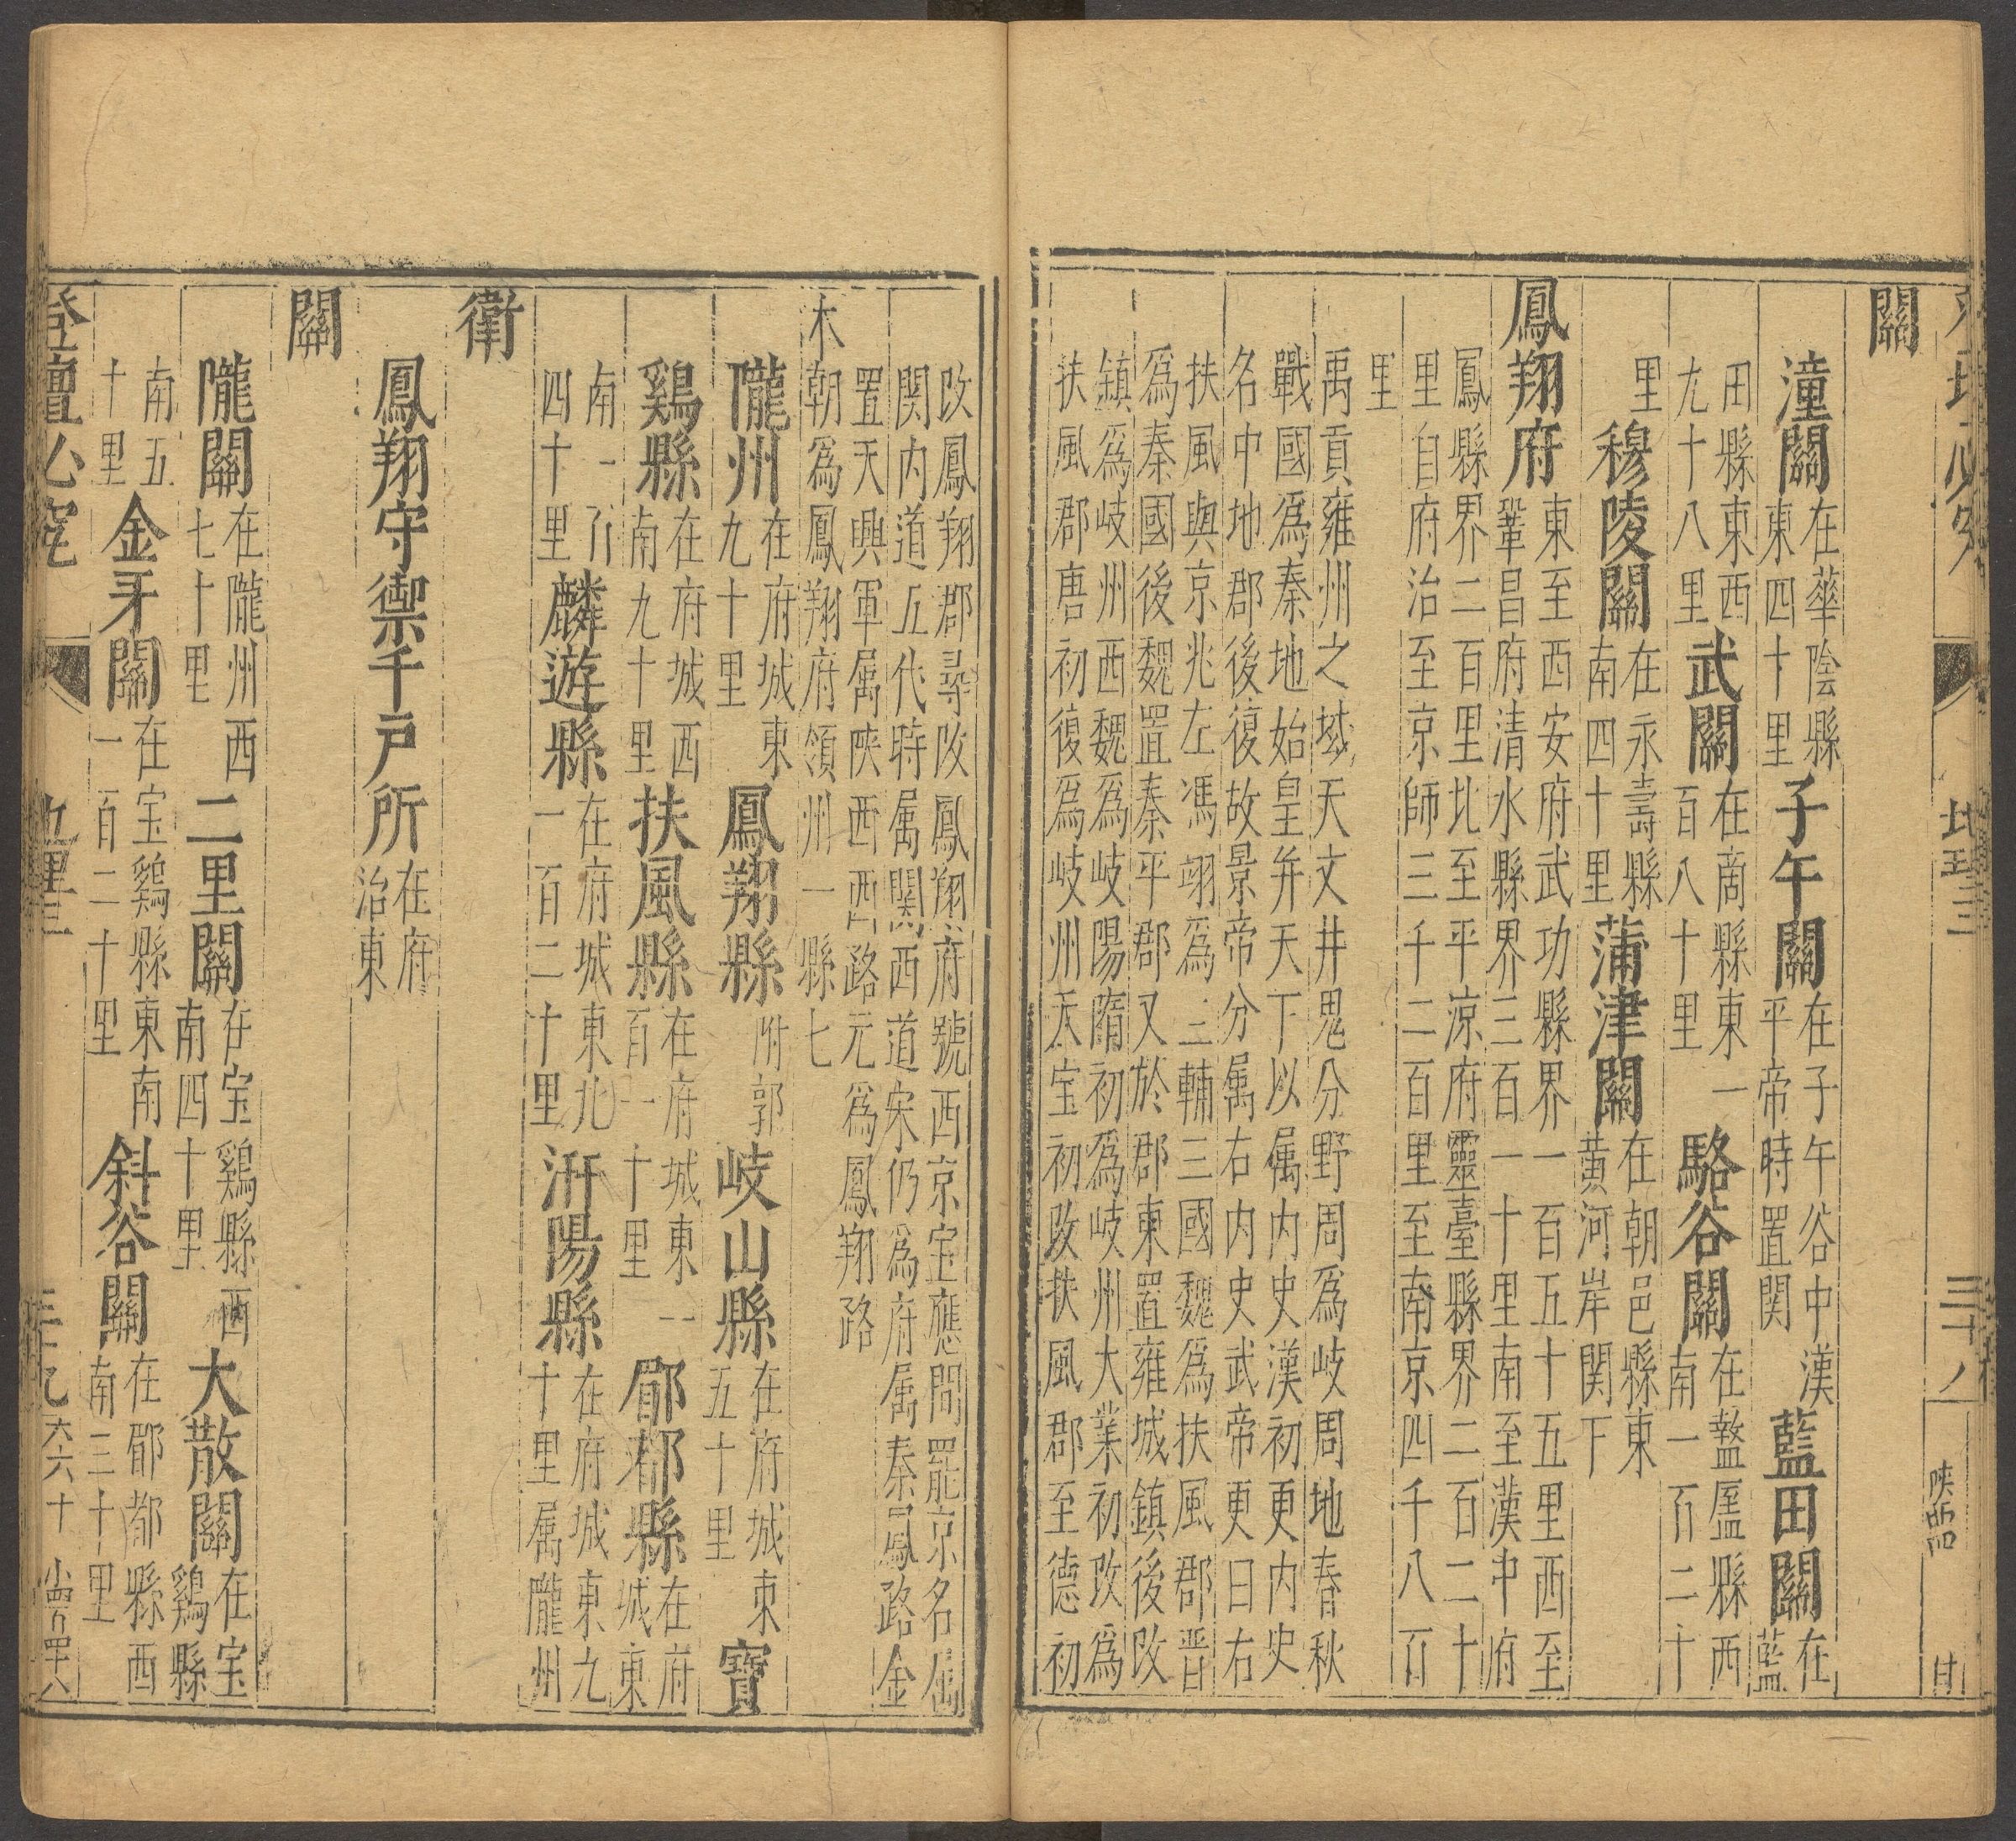 地理三 三十八 陝西
關
潼關在華陰縣東四十里子午關在子午谷中漢平帝時置関藍田關在藍
田縣東西九十八里武關在商縣東一百八十里駱谷關在盩厔縣西南一百二十
里穆陵關在永壽縣南四十里蒲津關在朝邑縣東黄河岸関下
鳳翔府東至西安府武功縣界一百五十五里西至鞏昌府清水縣界三百一十里南至漢中府
鳳縣界二百里北至平凉府靈臺縣界二百二十里自府治至京師三千二百里至南京四千八百
里
禹貢雍州之域天文井鬼分野周爲岐周地春秋
戰國爲秦地始皇并天下以属内史漢初更内史
名中地郡後復故景帝分属右内史武帝更曰右
扶風與京兆左馮翊爲三輔三國魏爲扶風郡晋
爲秦國後魏置秦平郡又於郡東置雍城鎮後改
鎮爲岐州西魏爲岐陽隋初爲岐州大業初改爲
扶風郡唐初復爲岐州天宝初改扶風郡至德初
改鳳翔郡尋改鳳翔府號西京宝應間罷京名属
関内道五代時属関西道宋仍爲府属秦鳳路金
置天興軍属陝西西路元爲鳳翔路
木朝爲鳳翔府領州一縣七
隴州在府城東九十里鳳翔縣附郭岐山縣在府城東五十里寶
鷄縣在府城西南九十里扶風縣在府城東一百一十里郿都縣在府城東
南一百四十里麟遊縣在府城東北一百二十里汧陽縣在府城東九十里属隴州
衛
鳳翔守禦千戶所在府治東
關
隴關在隴州西七十里二里關在宝鷄縣西南四十里大散關在宝鷄縣
南五十里金牙關在宝鷄縣東南一百二十里斜谷關在郿都縣西南三十里
登壇必究 地理三 三十九 大六十 小四百四十八